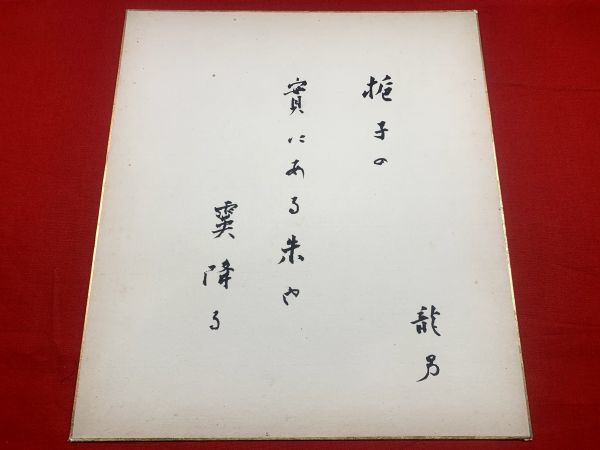 梔子の
實にある朱や
霙降る
龍男